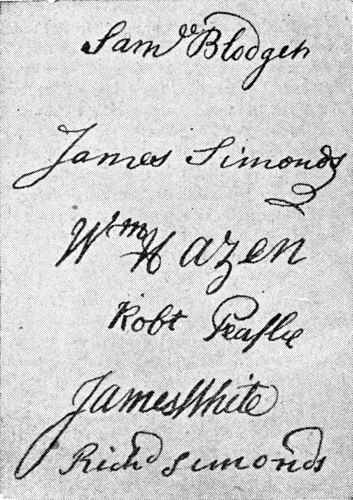 Samll Blodget
James Simonds
Wm Hazen
Robt Peaslie
James White
Richd Simonds